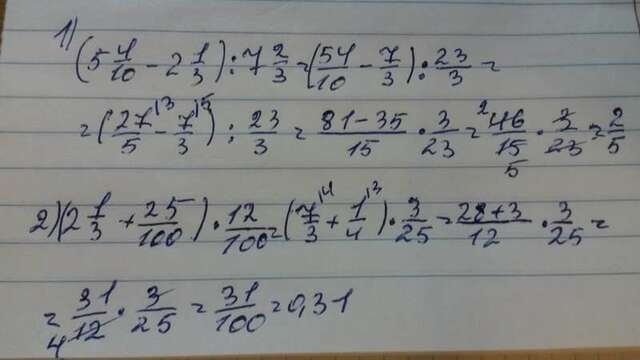 1)
(5 4/10 - 2 1/3) : 7 2/3 = (54/10 - 7/3) : 23/3 =
= (27/5 ^3 - 7/3 ^5) : 23/3 = 81-35/15 · 3/23 = ²46/15 5 · 3/23 = 2/5
2) (2 1/3 + 25/100) · 12/100 = (7/3 ^4 + 1/4 ^3) · 3/25 = 28+3/12 · 3/25 =
= 31/12 4 · 3/25 = 31/100 = 0,31